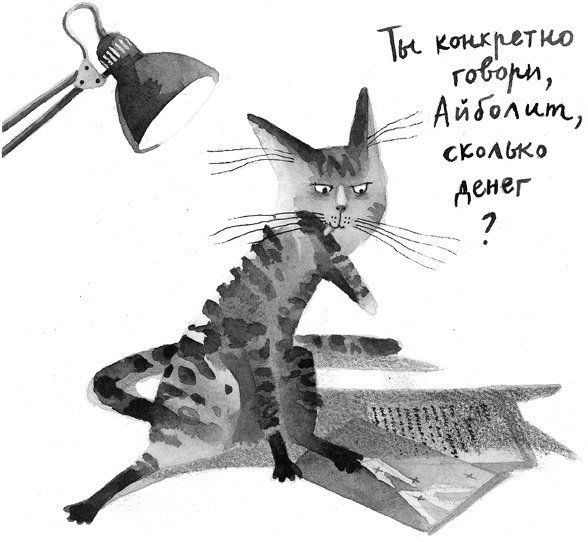 Ты конкретно
говори,
Айболит,
сколько
денег
?